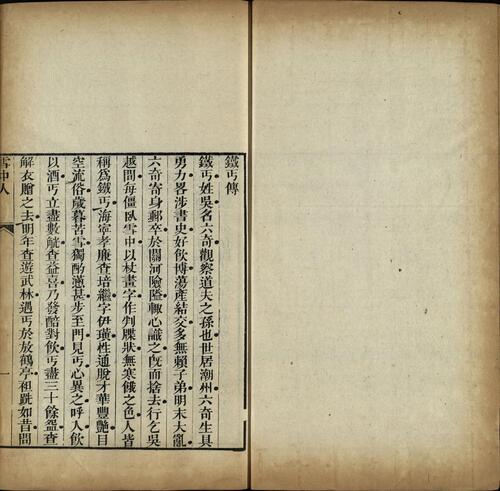 鐵丐傳
鐵丐姓吳名六奇觀察道夫之孫也世居潮州六奇生具
勇力畧涉書史好飲博蕩產結交多無賴子弟明末大亂
六奇寄身郵卒於關河險隘輒心識之旣而捨去行乞吳
越間每僵臥雪中以杖畫字作判牒狀無寒餓之色人皆
稱爲鐵丐海寧孝廉查培繼字伊璜性通脫才華豐艷目
空流俗歲暮苦雪獨酌邀甚步至門見丐心異之呼人飲
以酒丐立盡數觥查益喜乃發醅對飲丐盡三十餘盌查
解衣贈之去明年查遊武林遇丐於放鶴亭袒跣如昔問
雪中人
一